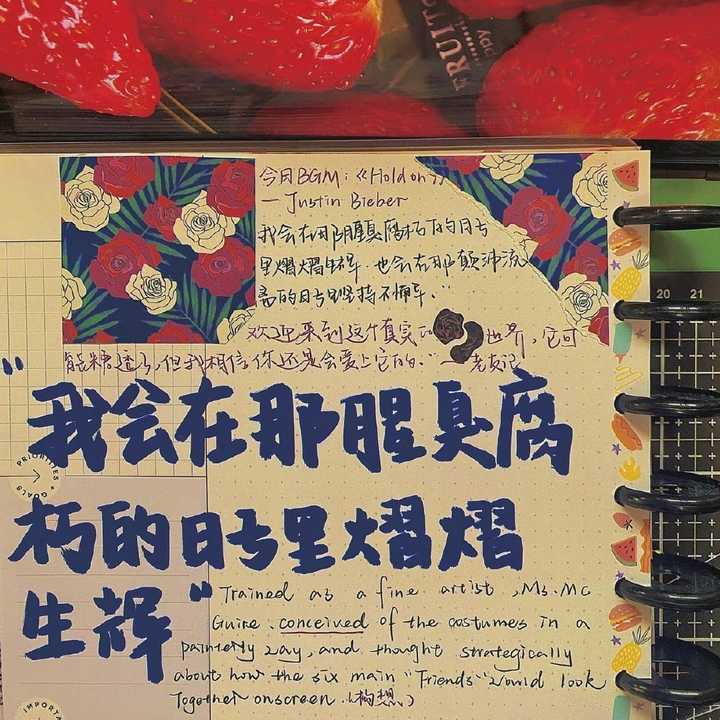 FRUIT
今日BGM:《Hold on》
—Justin Bieber
我会在那腥臭腐朽的日子
里熠熠生辉,也会在那颠沛流
离的日子里坚持不懈。"
欢迎来到这个真实 世界,它可
能糟透了,但我相信你还是会爱上它的."—老友记
"我会在那腥臭腐
朽的日子里熠熠
生辉"
PRIORITIES
GOALS
Trained as a fine artist, Ms. Mc
Guire. conceived of the costumes in a
painterly way, and thought strategically
about how the six main "Friends" would look
Together onscreen. (构想.)
IMPORTA
20 21